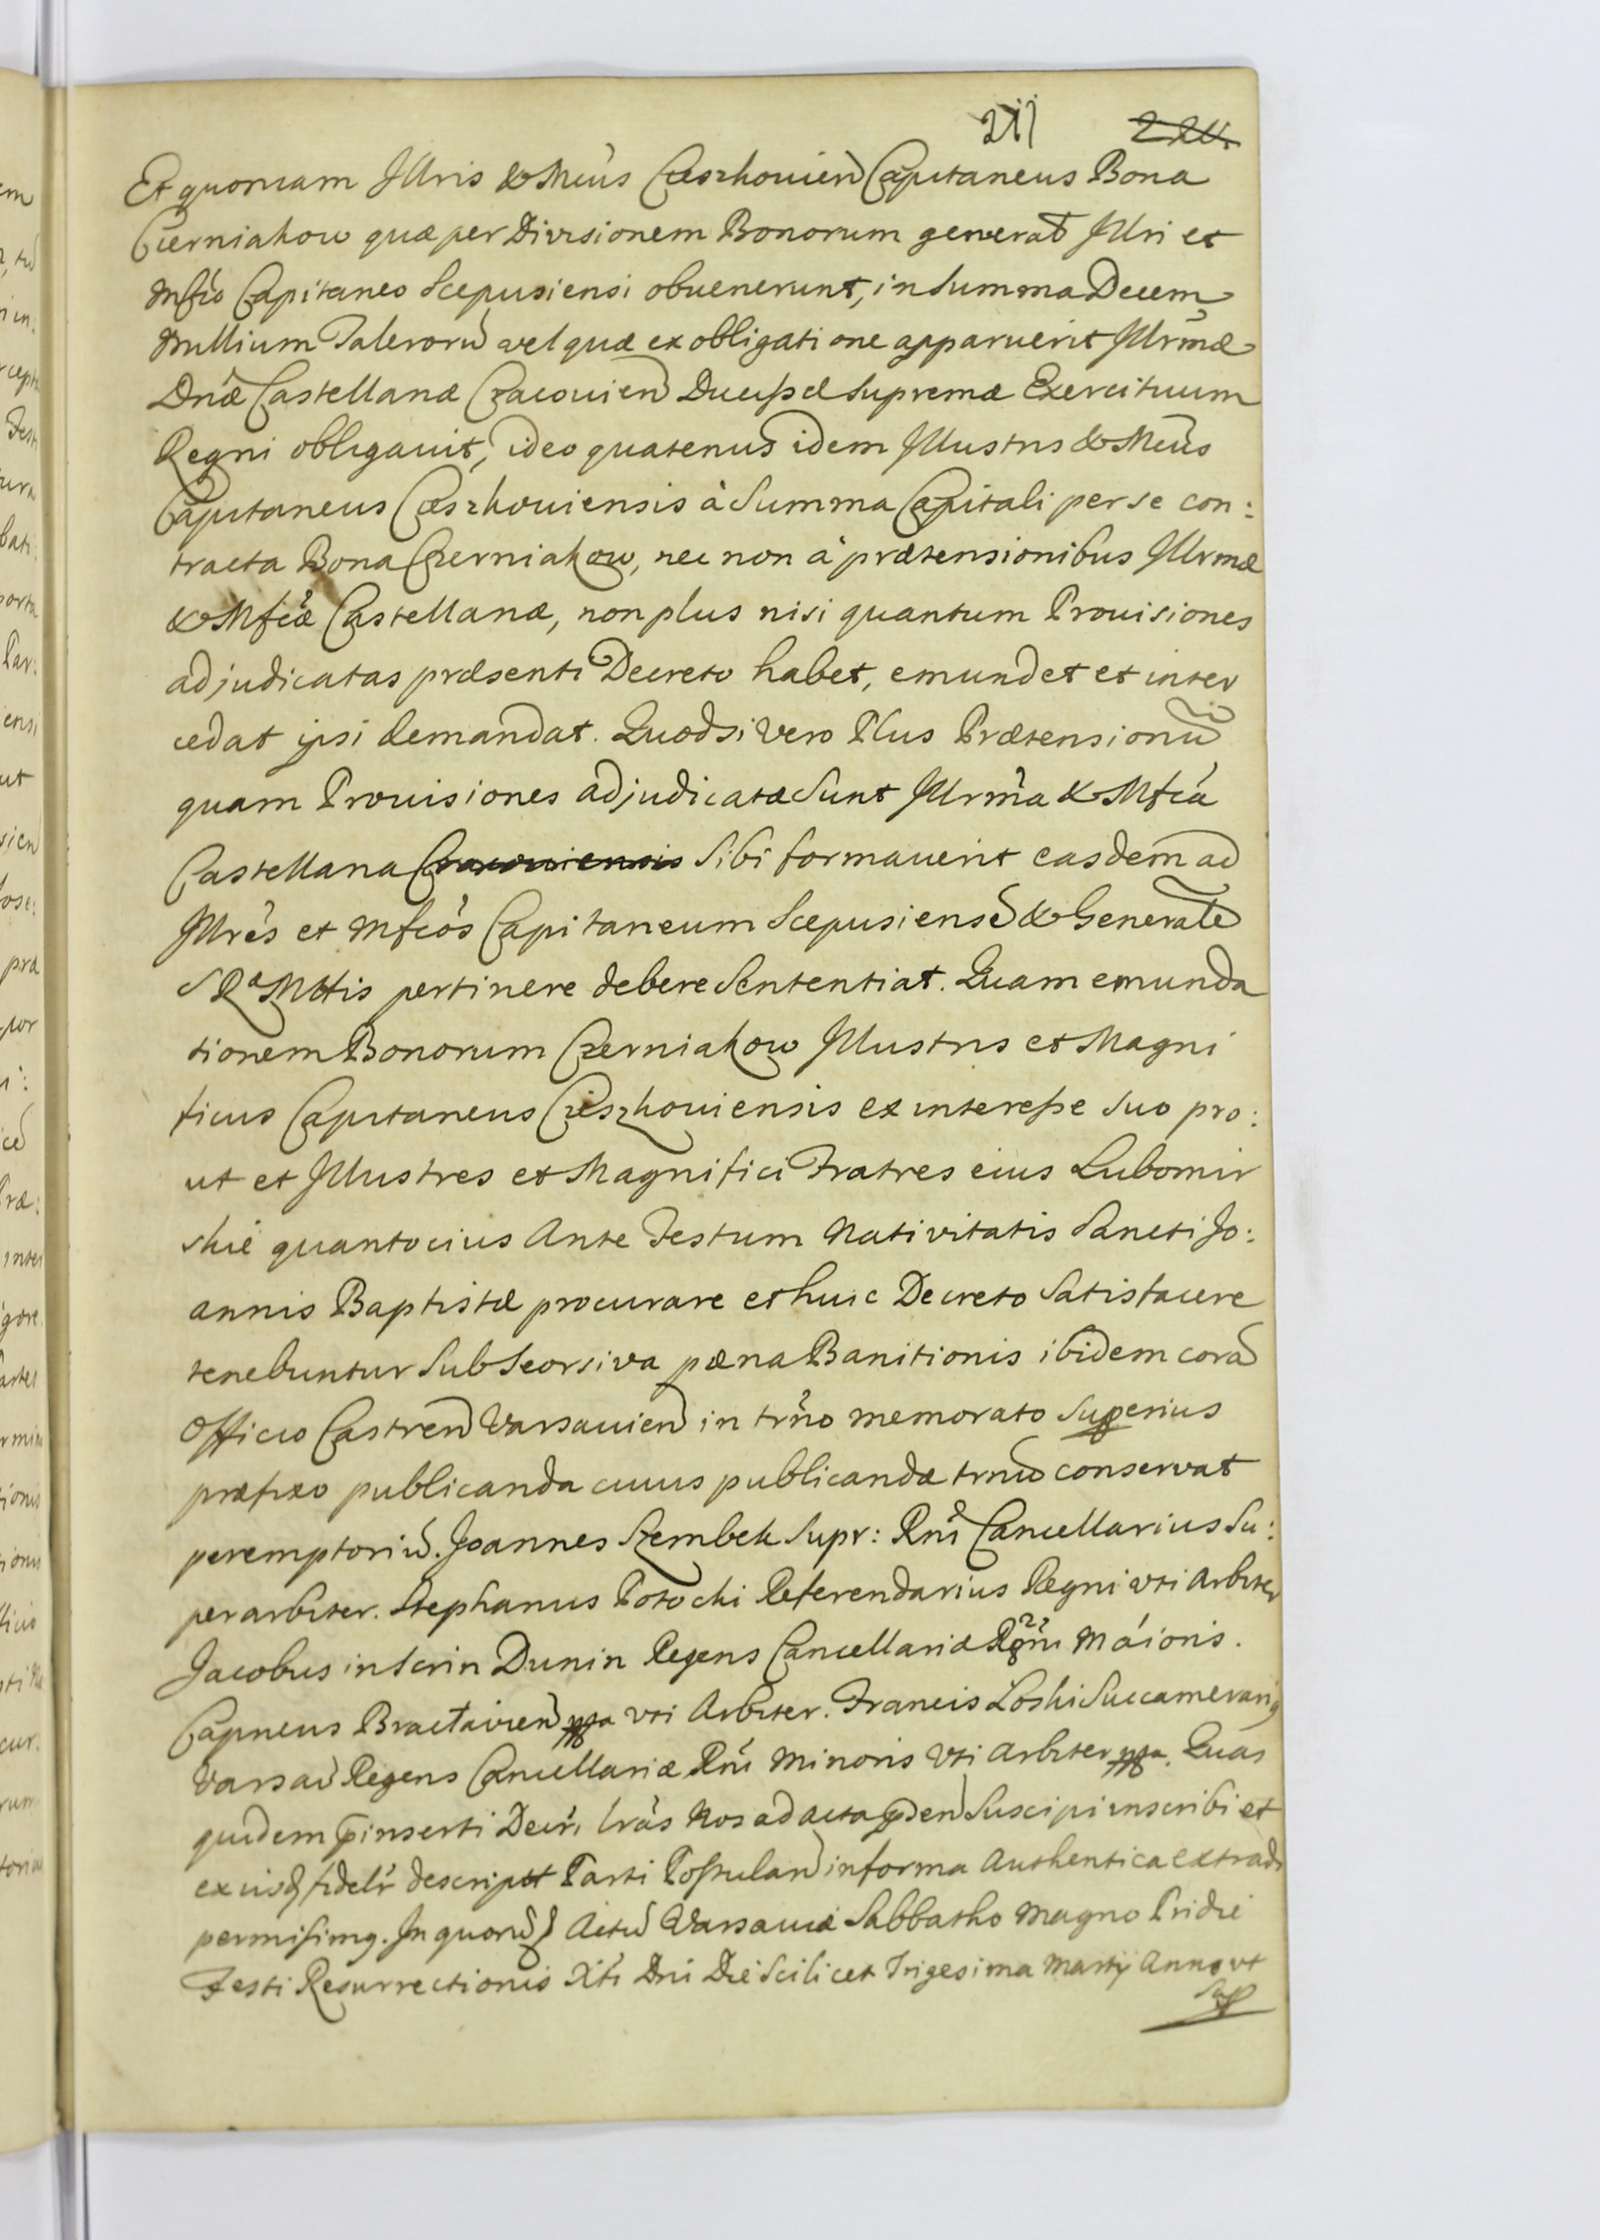 211 221.
Et quoniam Illris & Mcus Czeszkouien Capitaneus Bona
Czerniakow quæ per Divisionem Bonorum generat Illri et
Mfico Capitaneo Scepusiensi obuenerunt, in Summa Decem
Millium Talerorũ vel quæ ex obligatione apparuerit Illrmæ
Dnæ Castellanæ Cracouien Ducissæ Supremæ Exercituum
Regni obligauit, ideo quatenus idem Illustris & Mcus
Capitaneus Czeszkouiensis à Summa Capitali per se con:
tracta Bona Czerniakow, nec non à prætensionibus Illrmæ
& Mfcæ Castellanæ, non plus nisi quantum Prouisiones
adjudicatas præsenti Decreto habet, emundet et inter
cedat ipsi demandat. Quodsi vero Plus Prætensionũ
quam Prouisiones adjudicatæ Sunt Illrma & Mfca
Castellana Cracouiensis Sibi formauerit easdem ad
Illres et Mfcos Capitaneum Scepusiensẽ & Generalẽ
S Ra Mttis pertinere debere Sententiat. Quam emunda
tionem Bonorum Czerniakow Illustris et Magni
ficus Capitaneus Czieszkouiensis ex interesse Suo pro:
ut et Illustres et Magnifici Fratres eius Lubomir
skie quantocius Ante Festum Nativitatis Sancti Jo:
annis Baptistæ procurare et huic Decreto Satisfacere
tenebuntur Sub Seorsiva pæna Banitionis ibidem corã
Officio Castren Varsauien in trno memorato Superius
præfixo publicanda cuius publicandæ trnũ conservat
peremptoriũ. Joannes Szembek Supr: Rni Cancellarius Su:
perarbiter. Stephanus Potocki Referendarius Regni vti Arbiter
Jacobus in Scrin Dunin Regens Cancellariæ Rgni Maioris.
Capneus Bractavien mpa vti Arbiter. Francis Loski Succamerariq
Varsav Regens Cancellariæ Rni Minoris Vti Arbiter mpa. Quas
quidem pinserti Decri lras Nos ad acta pden Suscipi inscribi et
ex iisq fidelr descript Parti Postulan in forma Authentica extradi
permisimq. In quorũ Actũ Varsauiæ Sabbatho Magno Pridie
Festi Resurrectionis Xti Dni Die Scilicet Trigesima Martij Anno vt
Sup